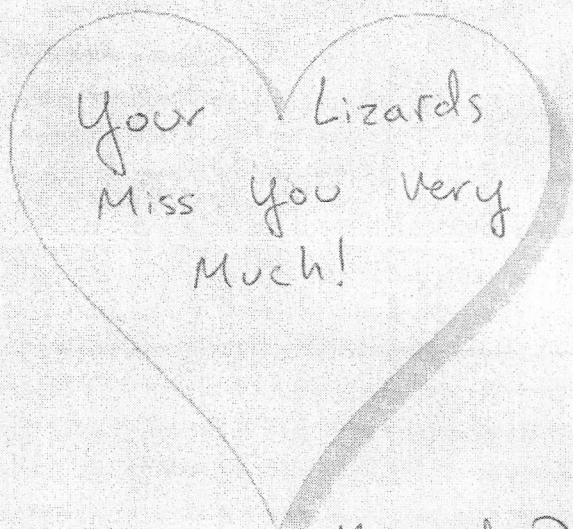 Your Lizards
Miss You Very
Much!